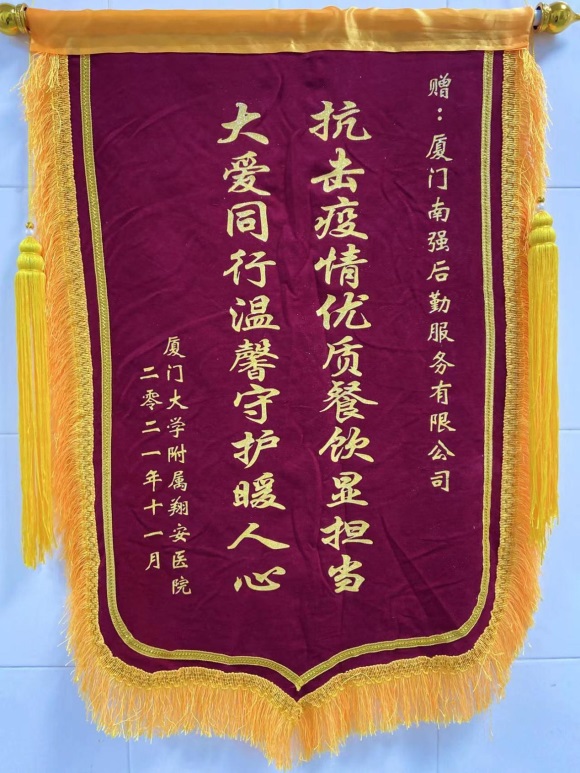 赠：厦门南强后勤服务有限公司
抗击疫情优质餐饮显担当
大爱同行温馨守护暖人心
厦门大学附属翔安医院
二零二一年十一月